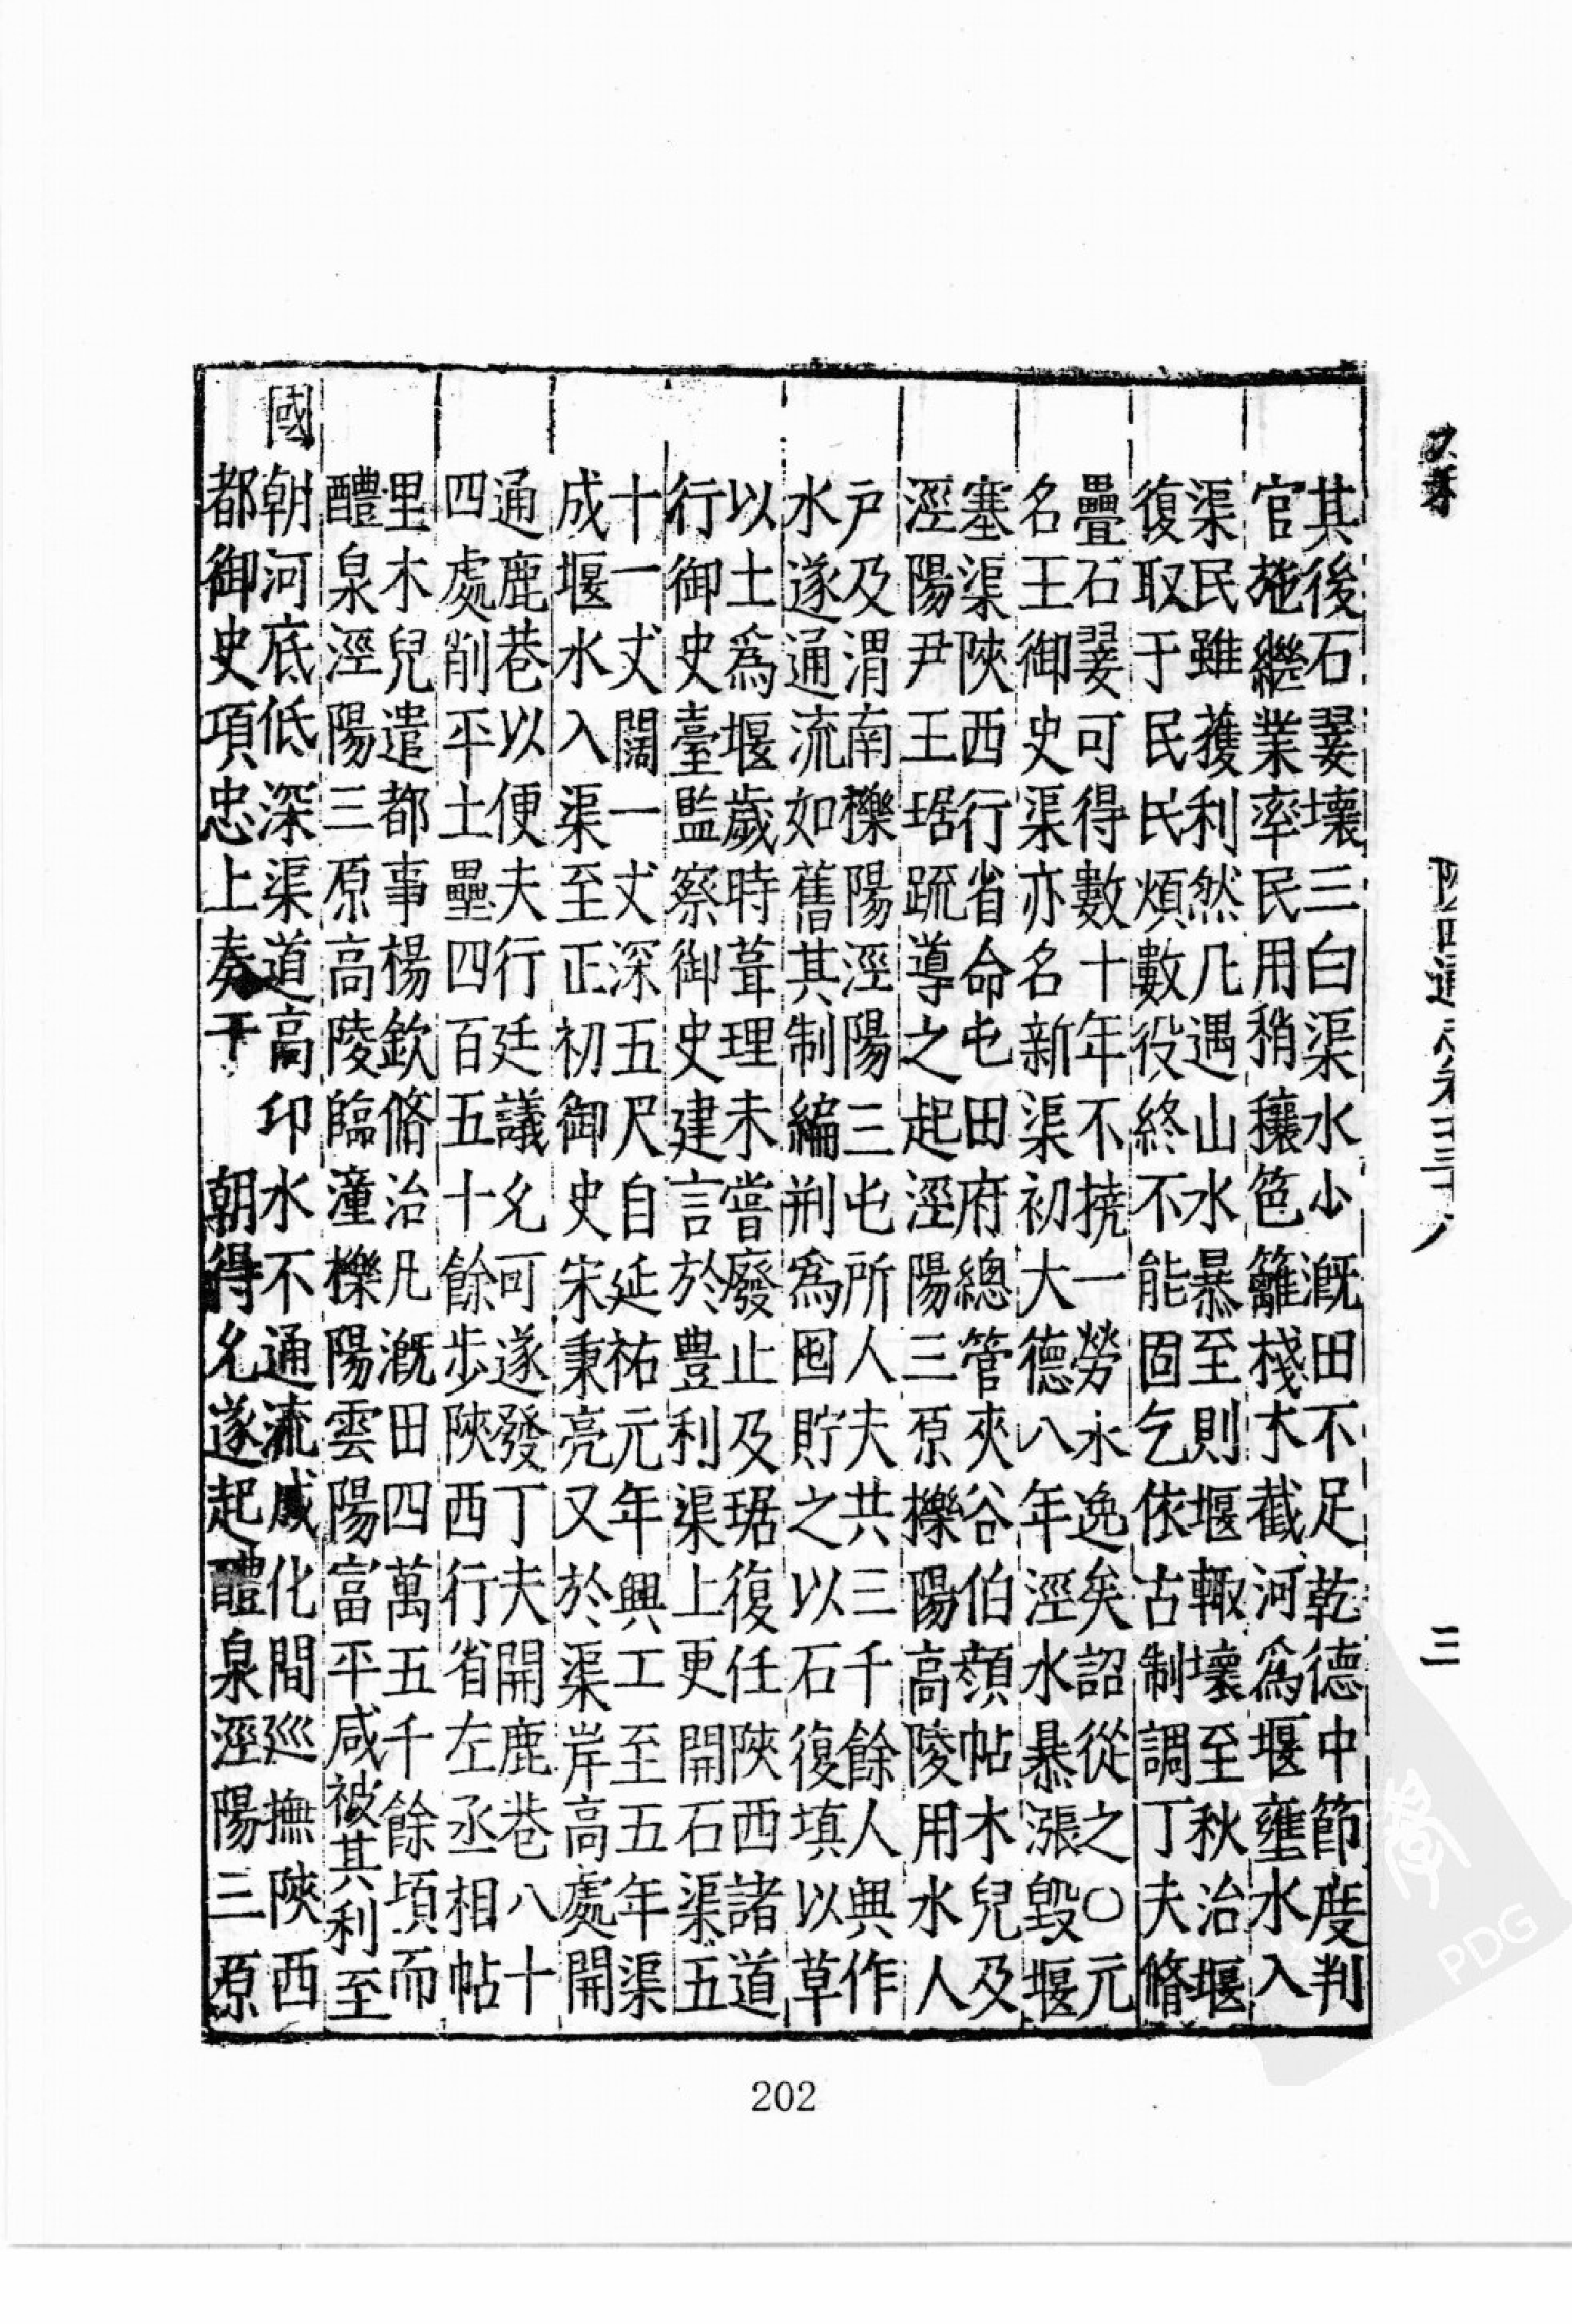 其後石翣壞三白渠水少溉田不足乾德中節度判
官施繼業率民用稍穰笆籬棧木截河爲堰壅水入
渠民雖獲利然凡遇山水暴至則堰輙壞至秋治堰
復取于民民煩數役終不能固乞依古制調丁夫脩
疊石翣可得數十年不撓一勞永逸矣詔從之〇元
名王御史渠亦名新渠初大德八年涇水暴漲毀堰
塞渠陝西行省命屯田府總管夾谷伯顏帖木兒及
涇陽尹王琚疏導之起涇陽三原櫟陽高陵用水人
戸及渭南櫟陽涇陽三屯所人夫共三千餘人興作
水遂通流如舊其制編荆爲囤貯之以石復填以草
以土爲堰歲時葺理未嘗廢止及琚復任陝西諸道
行御史臺監察御史建言於豊利渠上更開石渠五
十一丈闊一丈深五尺自延祐元年興工至五年渠
成堰水入渠至正初御史宋秉亮又於渠岸高處開
通鹿巷以便夫行廷議允可遂發丁夫開鹿巷八十
四處削平土壘四百五十餘步陝西行省左丞相帖
里木兒遣都事楊欽脩治凡溉田四萬五千餘頃而
醴泉涇陽三原高陵臨潼櫟陽雲陽富平咸被其利至
國朝河底低深渠道高卬水不通流成化間巡撫陝西
都御史項忠上奏于　朝得允遂起醴泉涇陽三原
三
202
PDG